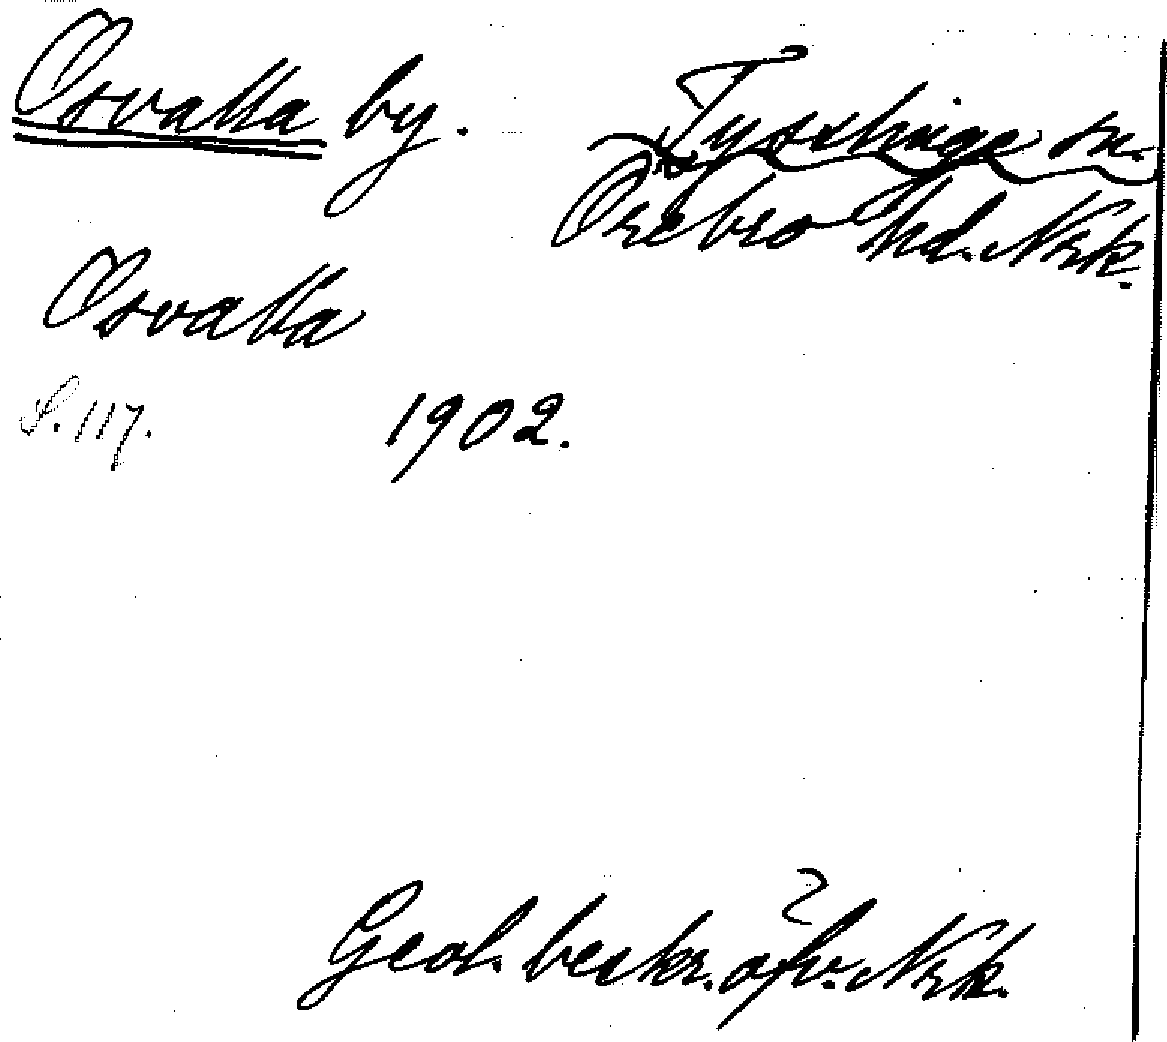 Osvalla by. Tysslinge sn.
Örebro hd. Nrk.
Osvalla
S. 117. 1902.
Geol. beskr. öfv. Nrk.